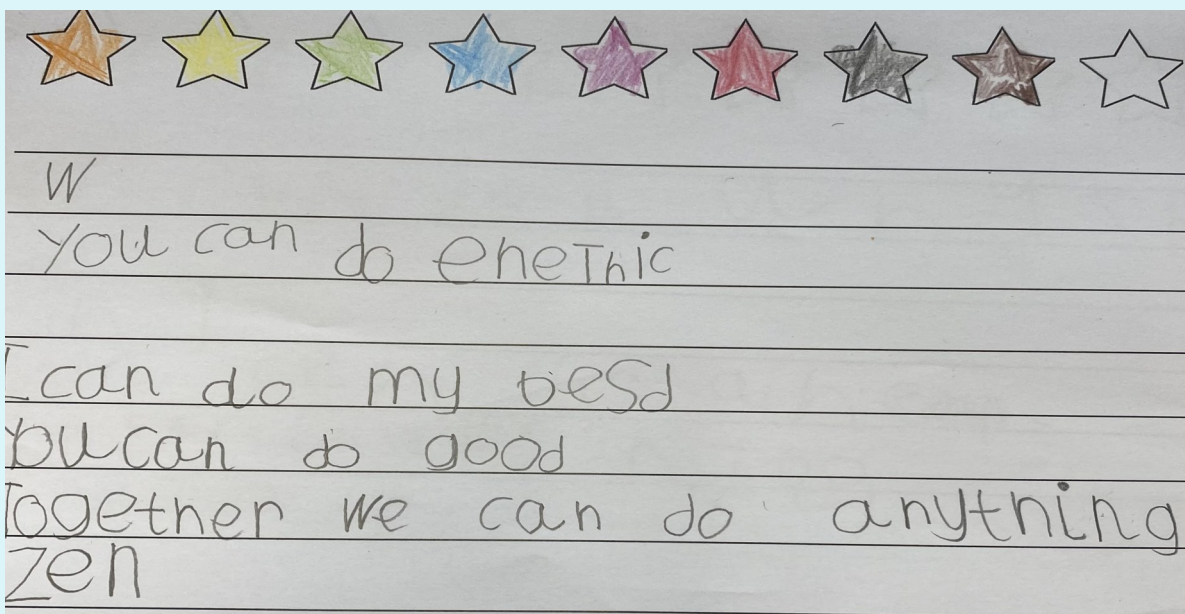 W
you can do eneThic
I can do my besd
You can do good
Together we can do anything
Zen